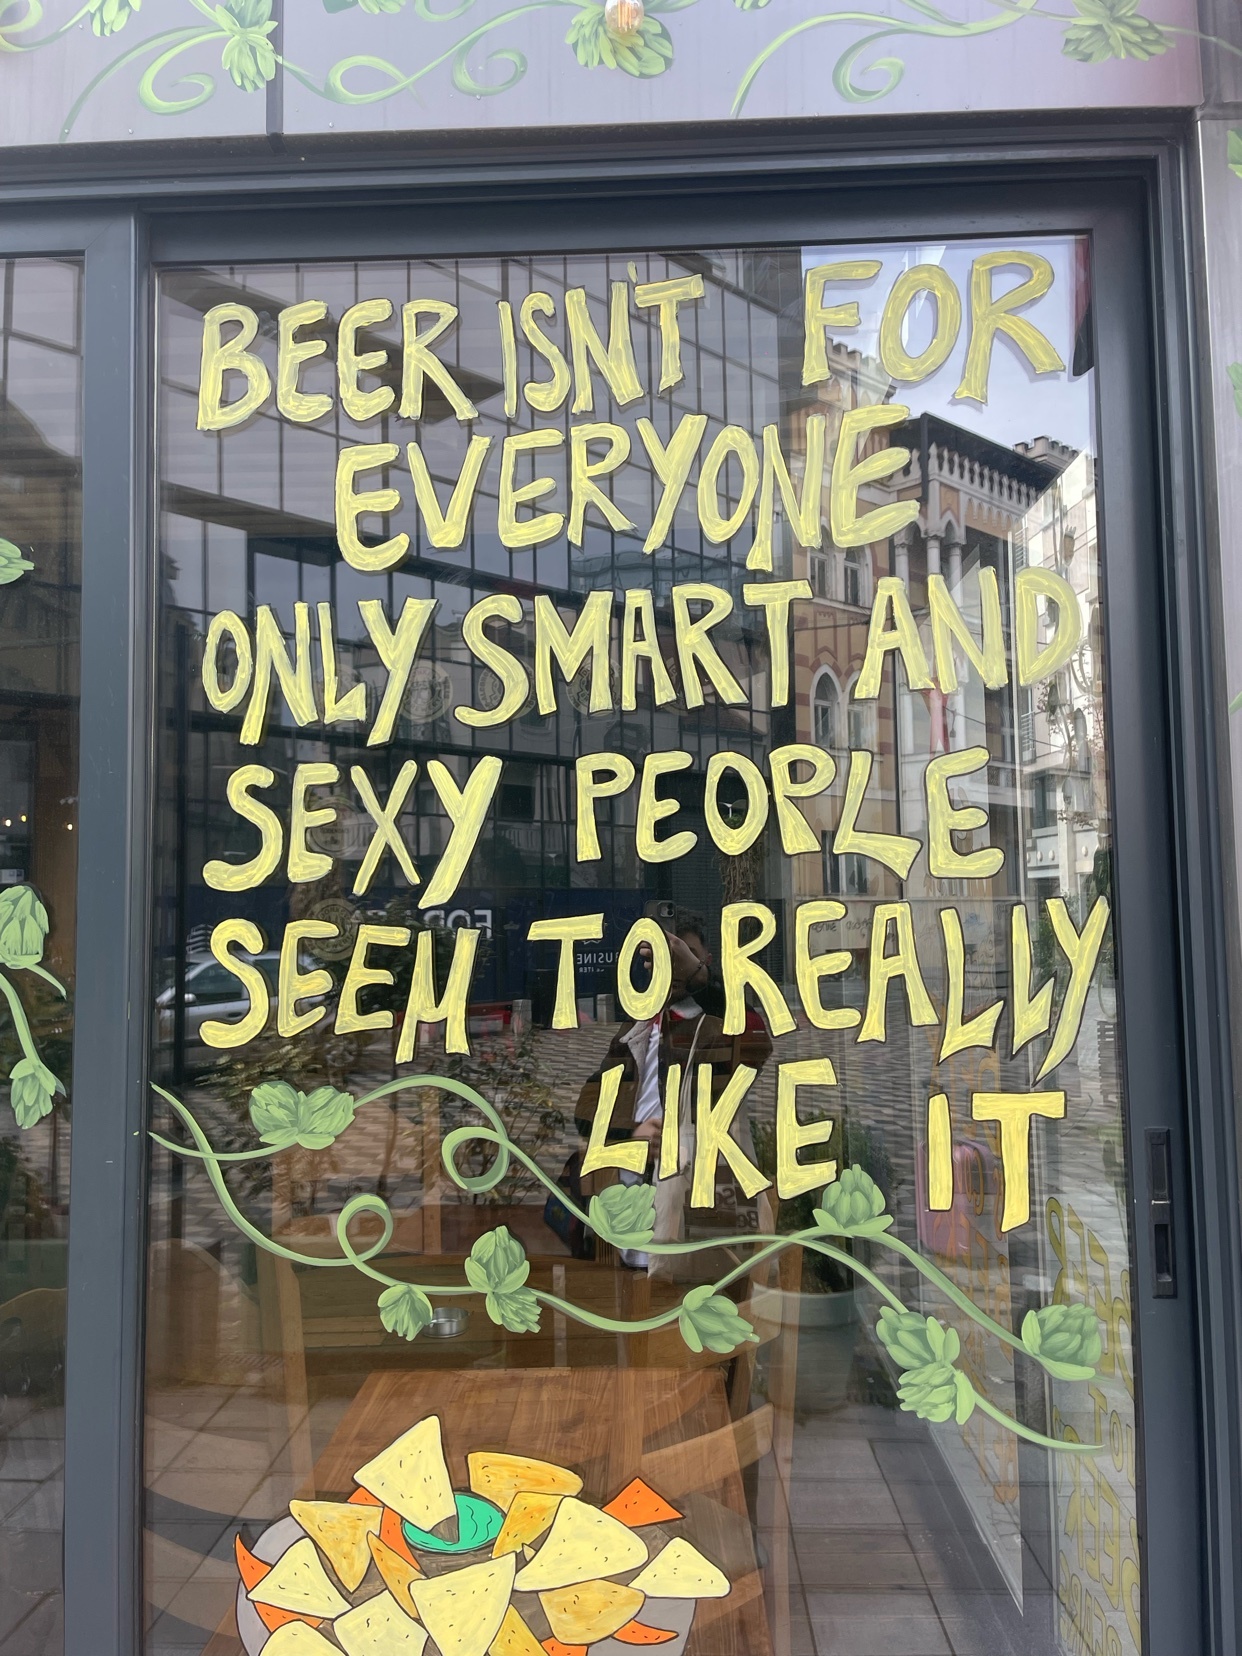 BEER ISN'T FOR
EVERYONE
ONLY SMART AND
SEXY PEOPLE
SEEM TO REALLY
LIKE IT